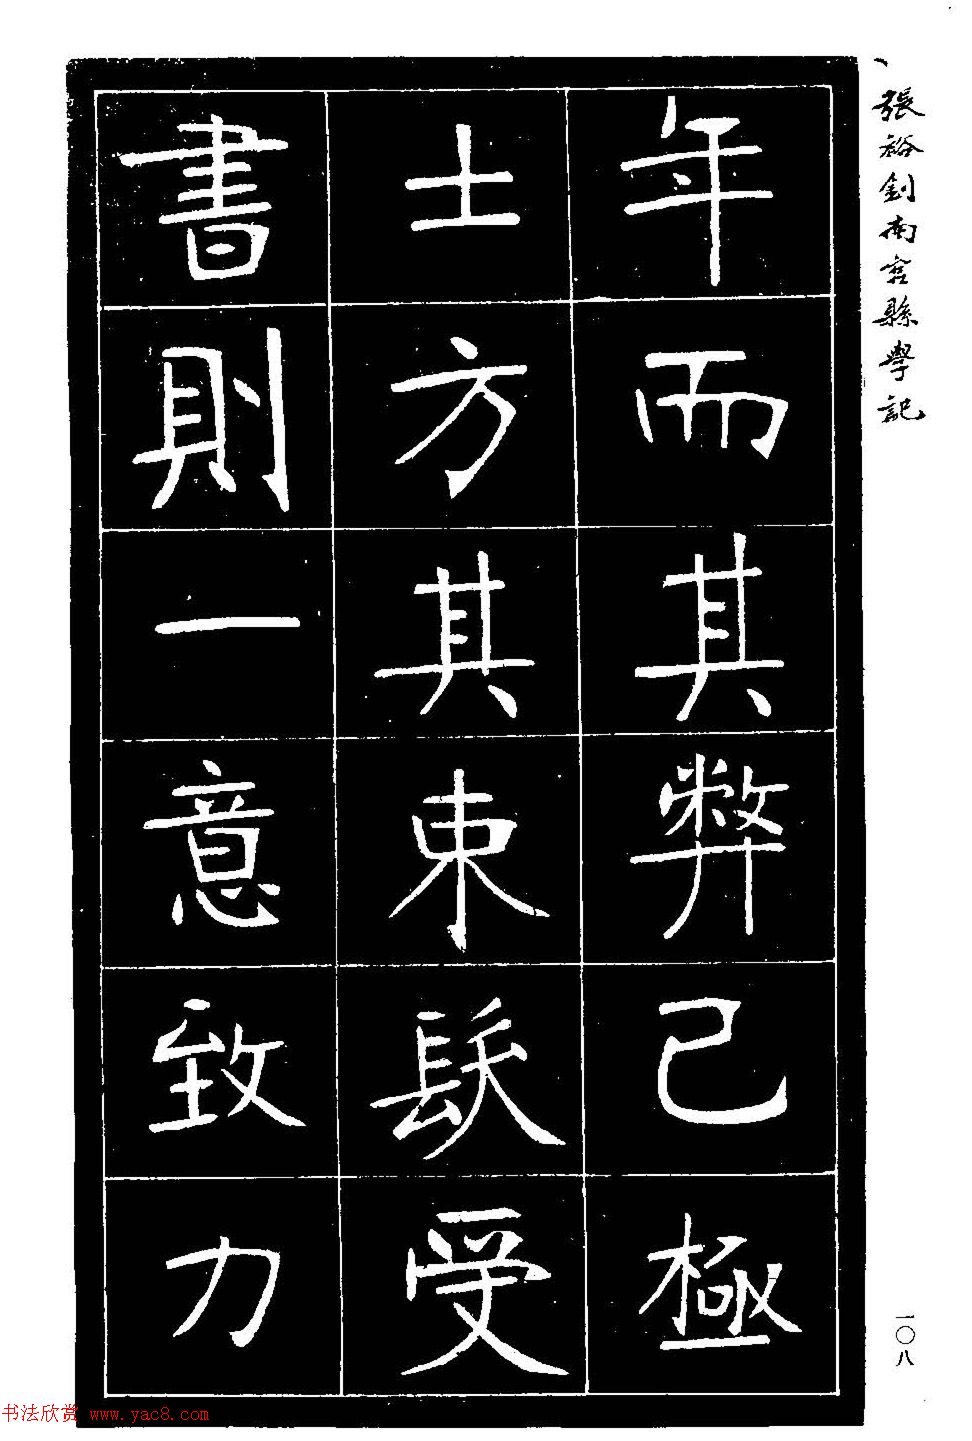 張裕釗南宮縣學記
年而其弊已極
士方其束髮受
書則一意致力
一〇八
书法欣赏 www.yac8.com